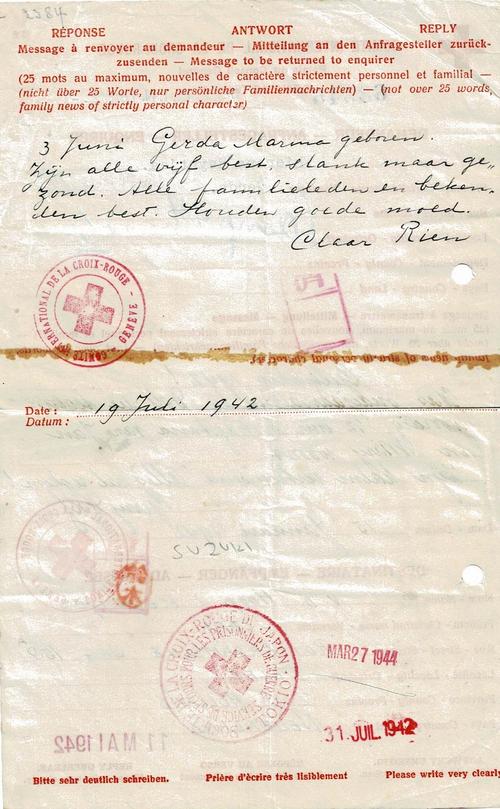 2384
RÉPONSE ANTWORT REPLY
Message à renvoyer au demandeur — Mitteilung an den Anfragesteller zurück-
zusenden — Message to be returned to enquirer
(25 mots au maximum, nouvelles de caractère strictement personnel et familial —
(nicht über 25 Worte, nur persönliche Familiennachrichten) — (not over 25 words,
family news of strictly personal character)
3 Juni Gerda Marina geboren.
Zijn alle vijf best, slank maar ge-
zond. Alle familieleden en beken-
den best. Houden goede moed.
Claar Rien
COMITÉ INTERNATIONAL DE LA CROIX-ROUGE - GENÈVE
Date : 19 Juli 1942
Datum :
SUZUKI
DE LA CROIX-ROUGE DU JAPON
POUR LES PRISONNIERS DE GUERRE
TOKIO
MAR 27 1944
31. JUIL. 1942
11 MAI 1942
Bitte sehr deutlich schreiben. Prière d'écrire très lisiblement Please write very clearly